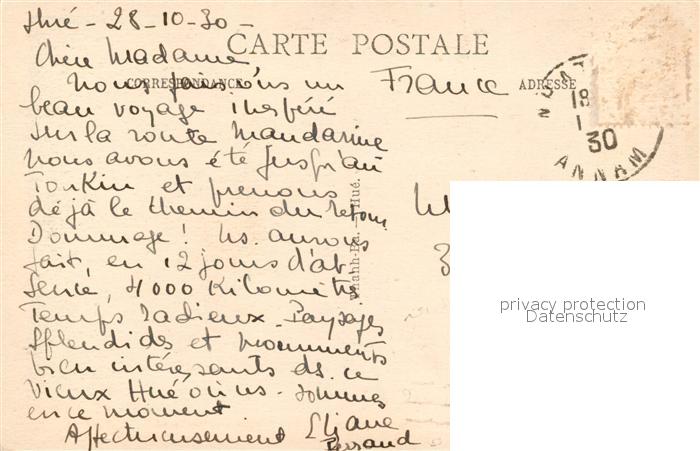 Hué - 28-10-30 -
CARTE POSTALE
Chère Madame,
CORRESPONDANCE
ADRESSE
France
Nous faisons un
beau voyage inespéré
sur la route Mandarine
nous avons été jusqu'au
Tonkin et prenons
déjà le chemin du retour
Dommage! Ns. aurons
fait, en 12 jours d'ab
sence, 4000 Kilomètres
Temps radieux - Paysages
splendides et monuments
bien intéressants ds. ce
Vieux Hué où ns. sommes
en ce moment.
Affectueusement Eliane
ANNAM
30
Hué.
privacy protection
Datenschutz